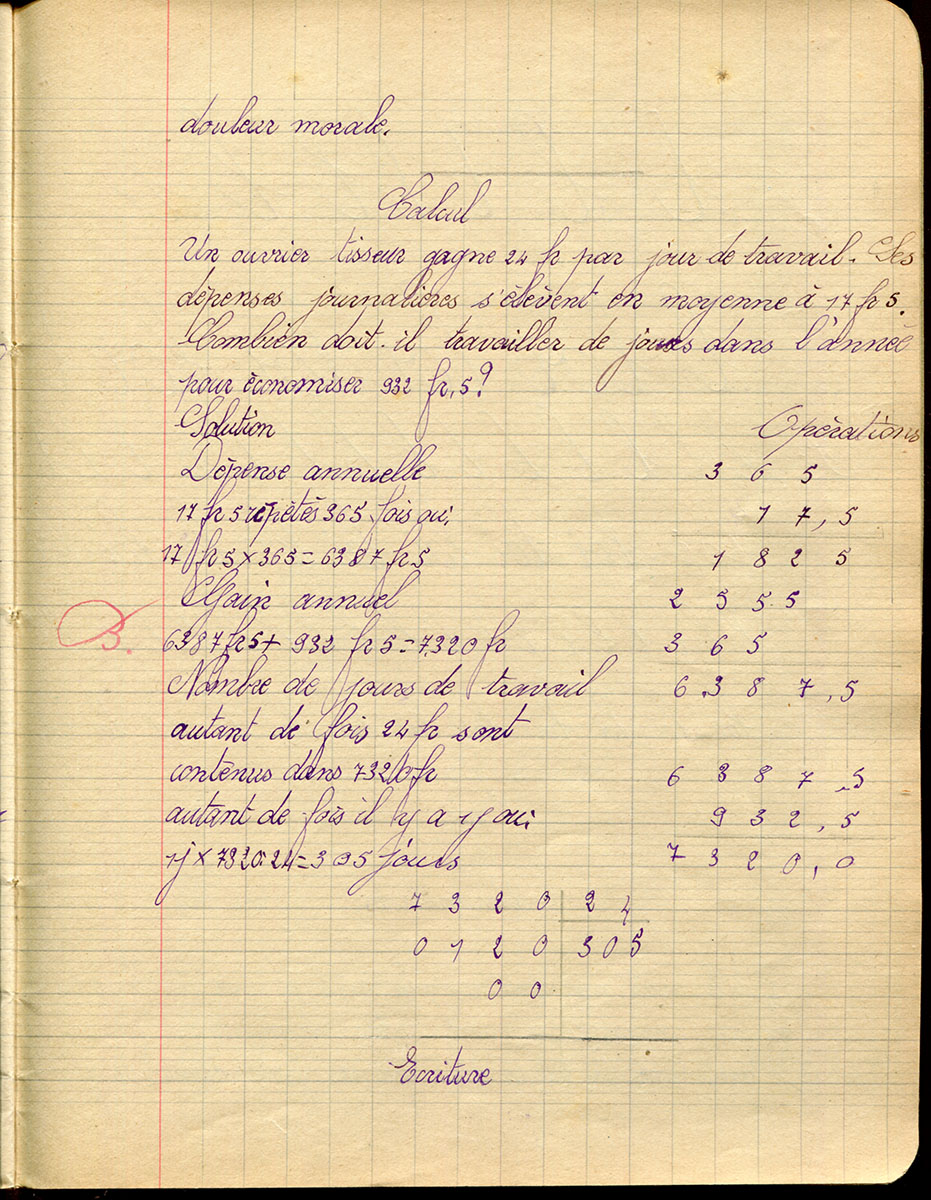 douleur morale.
Calcul
Un ouvrier tisseur gagne 24 fr par jour de travail. Ses
dépenses journalières s'élèvent en moyenne à 17 fr 5.
Combien doit-il travailler de jours dans l'année
pour économiser 932 fr,5?
Solution
Opérations
Dépense annuelle
17 fr 5 répétés 365 fois ou:
17 fr 5 × 365 = 6387 fr 5
Gain annuel
6387 fr 5 + 932 fr 5 = 7320 fr
Nombre de jours de travail
autant de fois 24 fr sont
contenus dans 7320 fr
autant de fois il y a 1 j ou:
1j × 7320:24 = 305 jours
3 6 5
1 7,5
1 8 2 5
2 5 5 5
3 6 5
6.3 8 7,5
6 3 8 7,5
9 3 2,5
7 3 2 0,0
7 3 2 0 24
0 1 2 0 305
0 0
3.
Ecriture